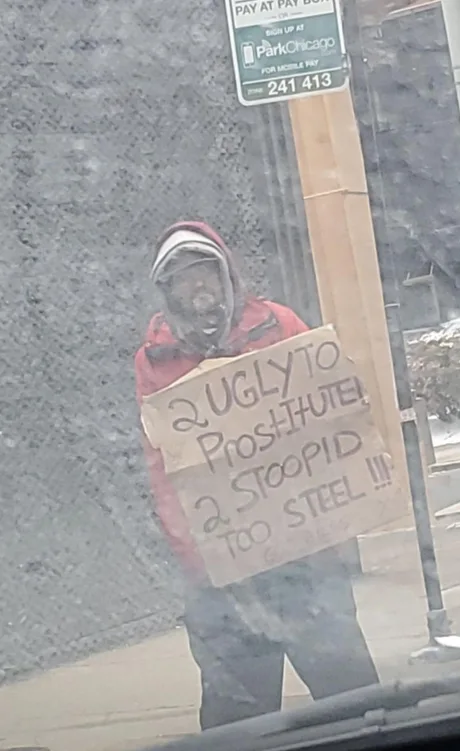 PAY AT PAY BOX
OR
SIGN UP AT
ParkChicago
FOR MOBILE PAY
ZONE 241 413
2 UGLY TO
PROSTITUTE!
2 STOOPID
TOO STEEL !!!